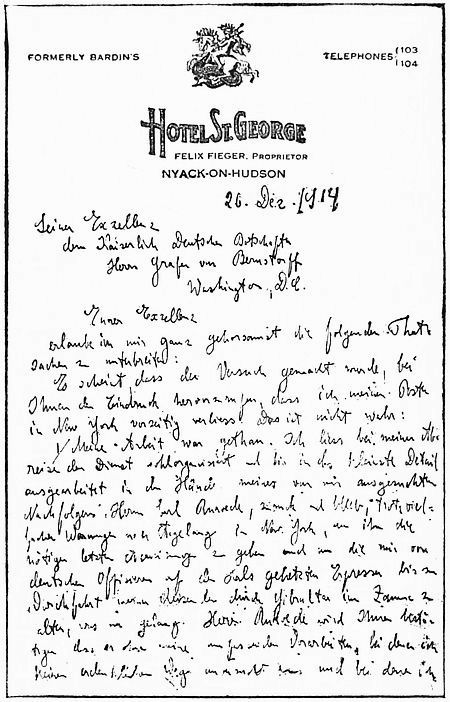 FORMERLY BARDIN'S
TELEPHONES { 103
104
HOTEL ST. GEORGE
FELIX FIEGER, PROPRIETOR
NYACK-ON-HUDSON
20. Dez. 1914
Seiner Exzellenz
dem Kaiserlich Deutschen Botschafter
Herrn Grafen von Bernstorff
Washington, D.C.
Eurer Exzellenz
erlaube ich mir ganz gehorsamst die folgenden That-
sachen zu unterbreiten:
Es scheint dass der Versuch gemacht wurde, bei
Ihnen den Eindruck hervorzurufen, dass ich meinen Posten
in New York vorzeitig verliess. Das ist nicht wahr:
1/ Meine Arbeit war gethan. Ich liess bei meiner Ab-
reise den Dienst wohlorganisiert und bis in das kleinste Detail
ausgearbeitet in den Händen meines von mir ausgesuchten
Nachfolgers, Herrn Carl zurück und blieb, trotz viel-
facher Warnungen noch Tage lang in New York, um ihm die
nötigen letzten Anweisungen zu geben und um die mir von
deutschen Offizieren auf den Hals gehetzten Erpresser bis zur
Durchfahrt meiner durch Gibraltar im Zaume zu
halten, was mir gelang. Herr wird Ihnen bestä-
tigen dass er ohne meine Vorarbeiten, bei denen ich
keinen Wege und bei denen ich